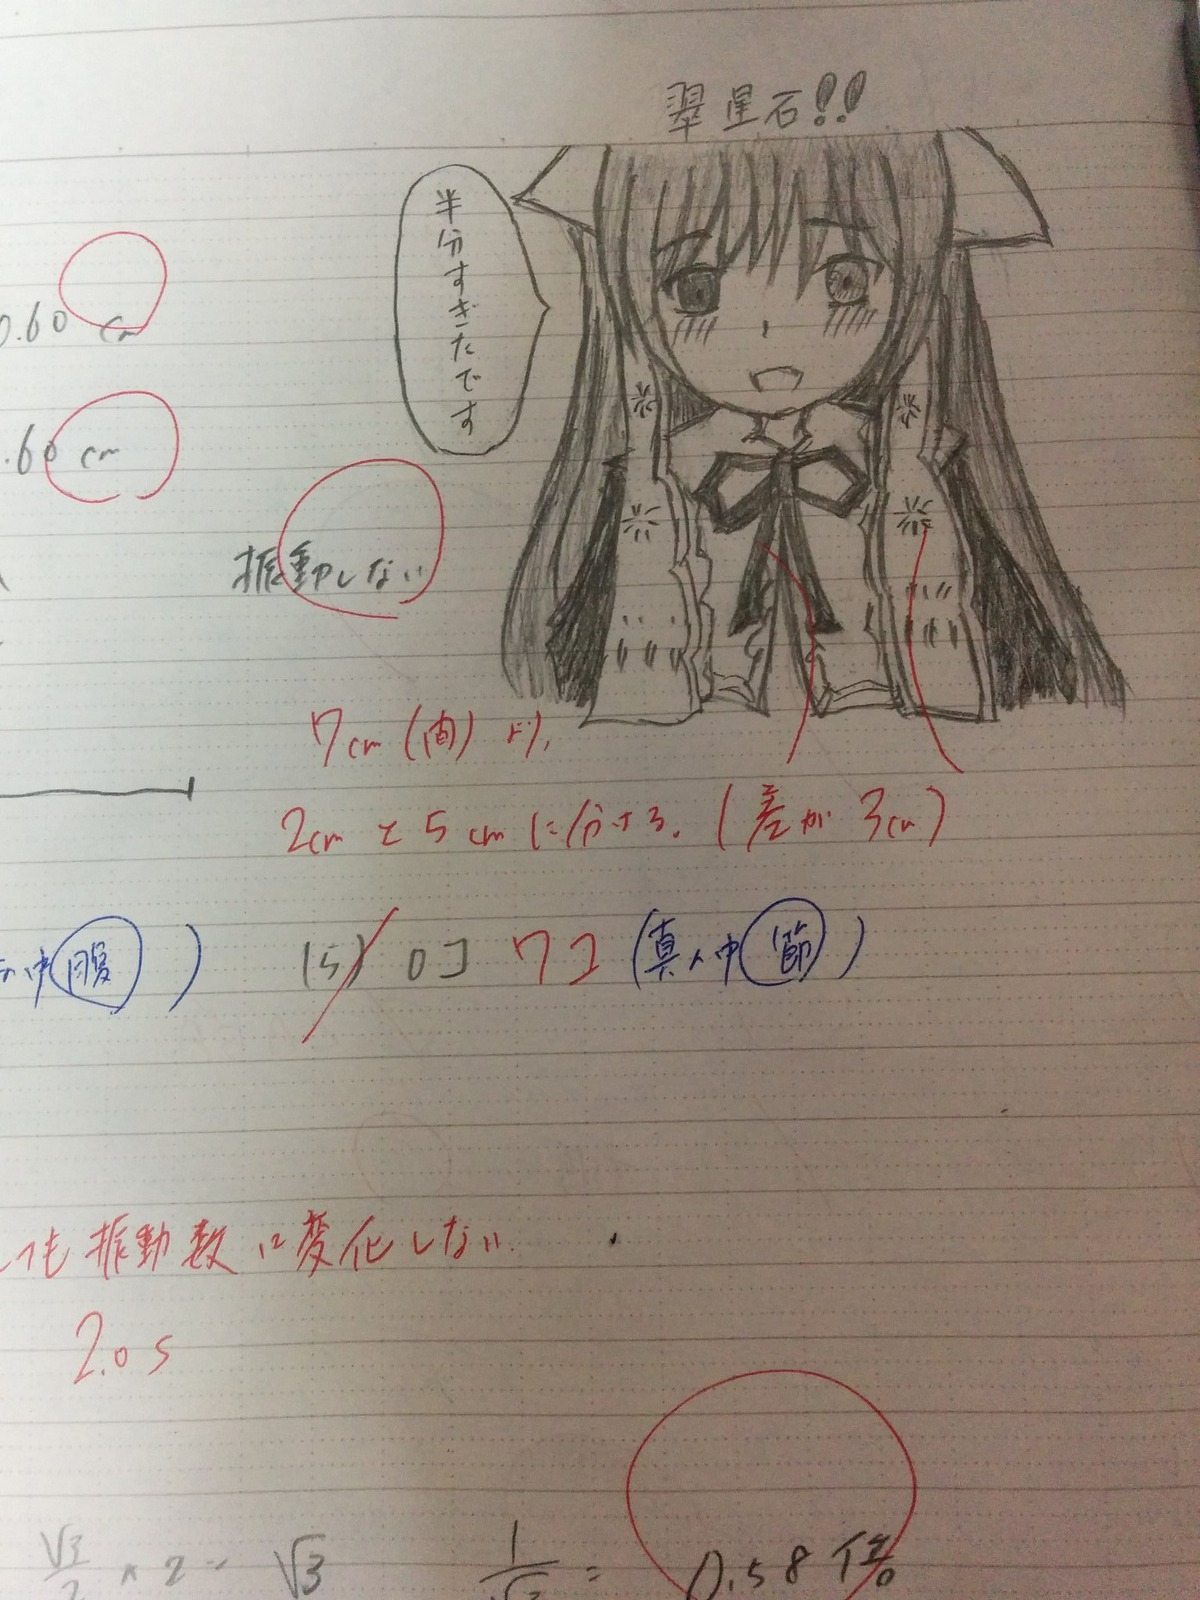 翠星石!!
半分すぎたです
0.60 cm
.60 cm
振動しない
7cm (歯) より,
2cm と 5cm に分ける. (差が 3cm)
中腹 )
(5) ロコ ワコ (真ん中節)
ても振動数は変化しない.
2.0 s
√3/2 × 2 = √3
= 0.58倍